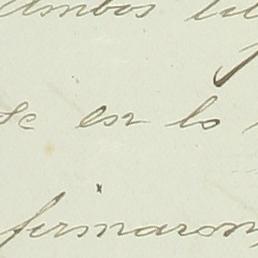 Ambos
se en lo
firmaron